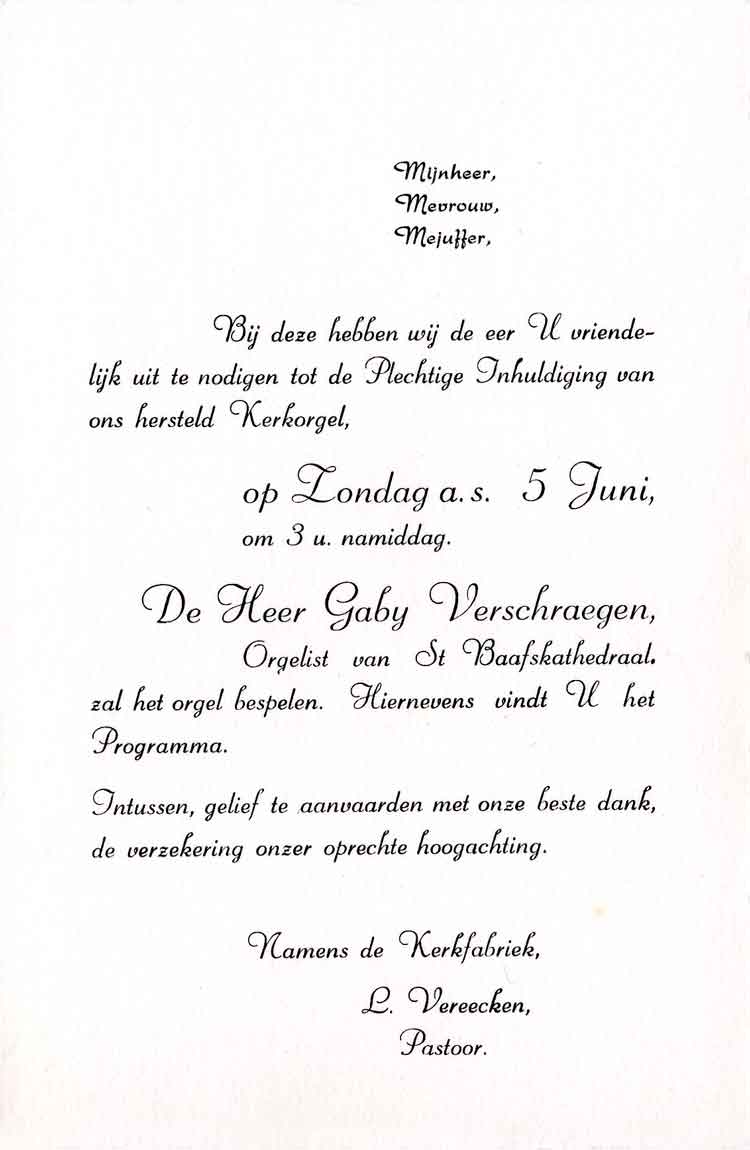 Mijnheer,
Mevrouw,
Mejuffer,
Bij deze hebben wij de eer U vriende-
lijk uit te nodigen tot de Plechtige Inhuldiging van
ons hersteld Kerkorgel,
op Zondag a. s. 5 Juni,
om 3 u. namiddag.
De Heer Gaby Verschraegen,
Orgelist van St Baafskathedraal.
zal het orgel bespelen. Hiernevens vindt U het
Programma.
Intussen, gelief te aanvaarden met onze beste dank,
de verzekering onzer oprechte hoogachting.
Namens de Kerkfabriek,
L. Vereecken,
Pastoor.